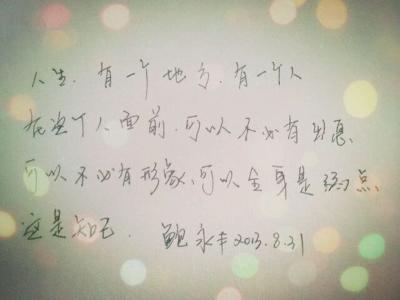 人生. 有一个地方. 有一个人
在这个人面前. 可以不必有出息、
可以不必有形象、可以全身是弱点、
这是知己. 鲍永丰 2013.8.31